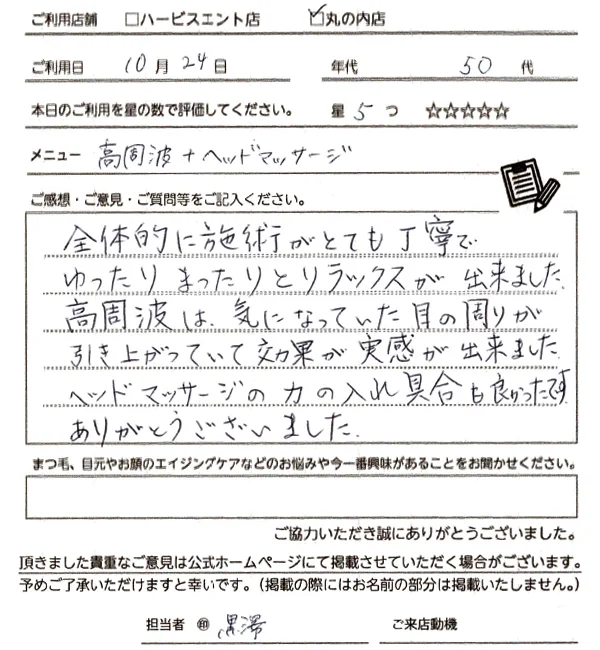 ご利用店舗 □ハービスエント店 ☑丸の内店
ご利用日 10月24日 年代 50代
本日のご利用を星の数で評価してください。 星 5つ ☆☆☆☆☆
メニュー 高周波+ヘッドマッサージ
ご感想・ご意見・ご質問等をご記入ください。
全体的に施術がとても丁寧で
ゆったりまったりとリラックスが出来ました.
高周波は、気になっていた目の周りが
引き上がっていて効果が実感が出来ました.
ヘッドマッサージの力の入れ具合も良かったです
ありがとうございました.
まつ毛、目元やお顔のエイジングケアなどのお悩みや今一番興味があることをお聞かせください。
ご協力いただき誠にありがとうございました。
頂きました貴重なご意見は公式ホームページにて掲載させていただく場合がございます。
予めご了承いただけますと幸いです。（掲載の際にはお名前の部分は掲載いたしません。）
担当者 ㊞ 黒澤 ご来店動機